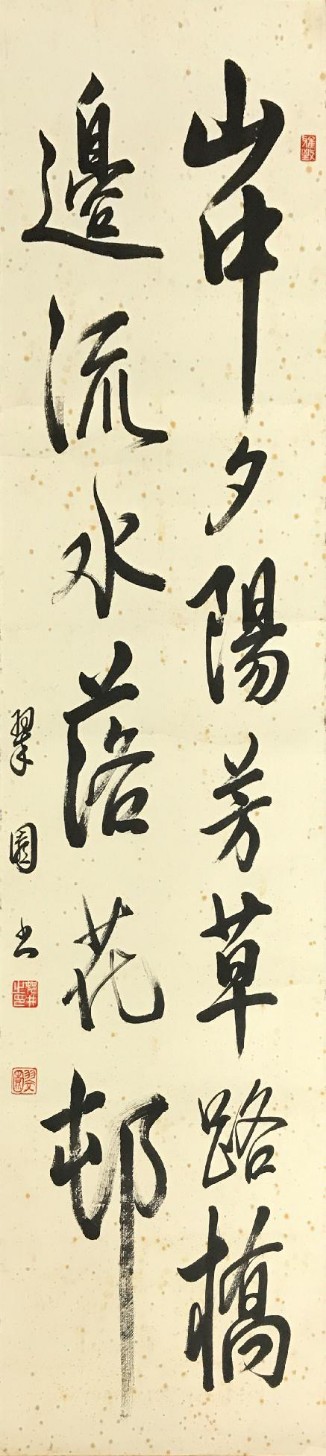 山中夕陽芳草路橋
邊流水落花邨
翠園书